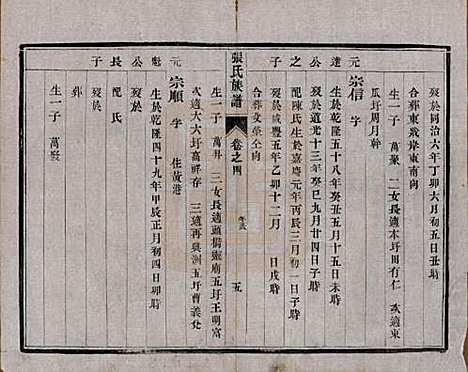 歿於同治六年丁卯大月初五日丑時
合葬東戒岸東南向
生一子 萬聚 二女長適本圩田有仁 次適東
瓜圩周月幹
元達公之子
宗信 字
生於乾隆五十八年癸丑五月十五日未時
歿於道光十三年癸巳九月廿四日子時
配陳氏生於嘉慶元年丙辰三月初一日子時
歿於咸豐五年乙卯十二月 日戌時
合葬文塋仝向
張氏族譜
卷之四
五
生一子 萬井 三女長適頭橋靈廟五圩王明富
次適大大圩高祥春 三適再興洲五圩曹義允
元魁公長子
宗順 字 住黃港
生於乾隆四十九年甲辰正月初四日卯時
歿於
配 氏
歿於
葬
生一子 萬聚